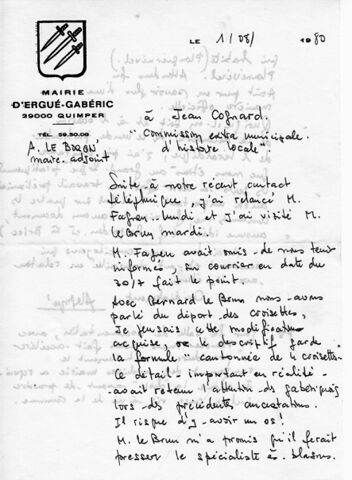 LE 1/08/ 1980
MAIRIE
D'ERGUÉ-GABÉRIC
29000 QUIMPER
TÉL. 59.50.06
A. LE BRON
maire adjoint
à Jean Cognard.
"Commission extra municipale
d'histoire locale"
Suite à notre récent contact
téléphonique, j'ai relancé M.
lundi et j'ai visité M.
le Brun mardi.
M. avait omis de nous tenir
informés, un courrier en date du
30/7 fait le point.
Avec Bernard le Brun nous avons
parlé du départ des croisettes,
Je pensais cette modification
acquise, or le descriptif garde
la formule "cantonnée de 4 croisettes"
Ce détail - important en réalité -
avait retenu l'attention des gabéricois
lors des précédentes
Il risque d'y avoir un os!
M. le Brun m'a promis qu'il ferait
presser le spécialiste ès. blasons.